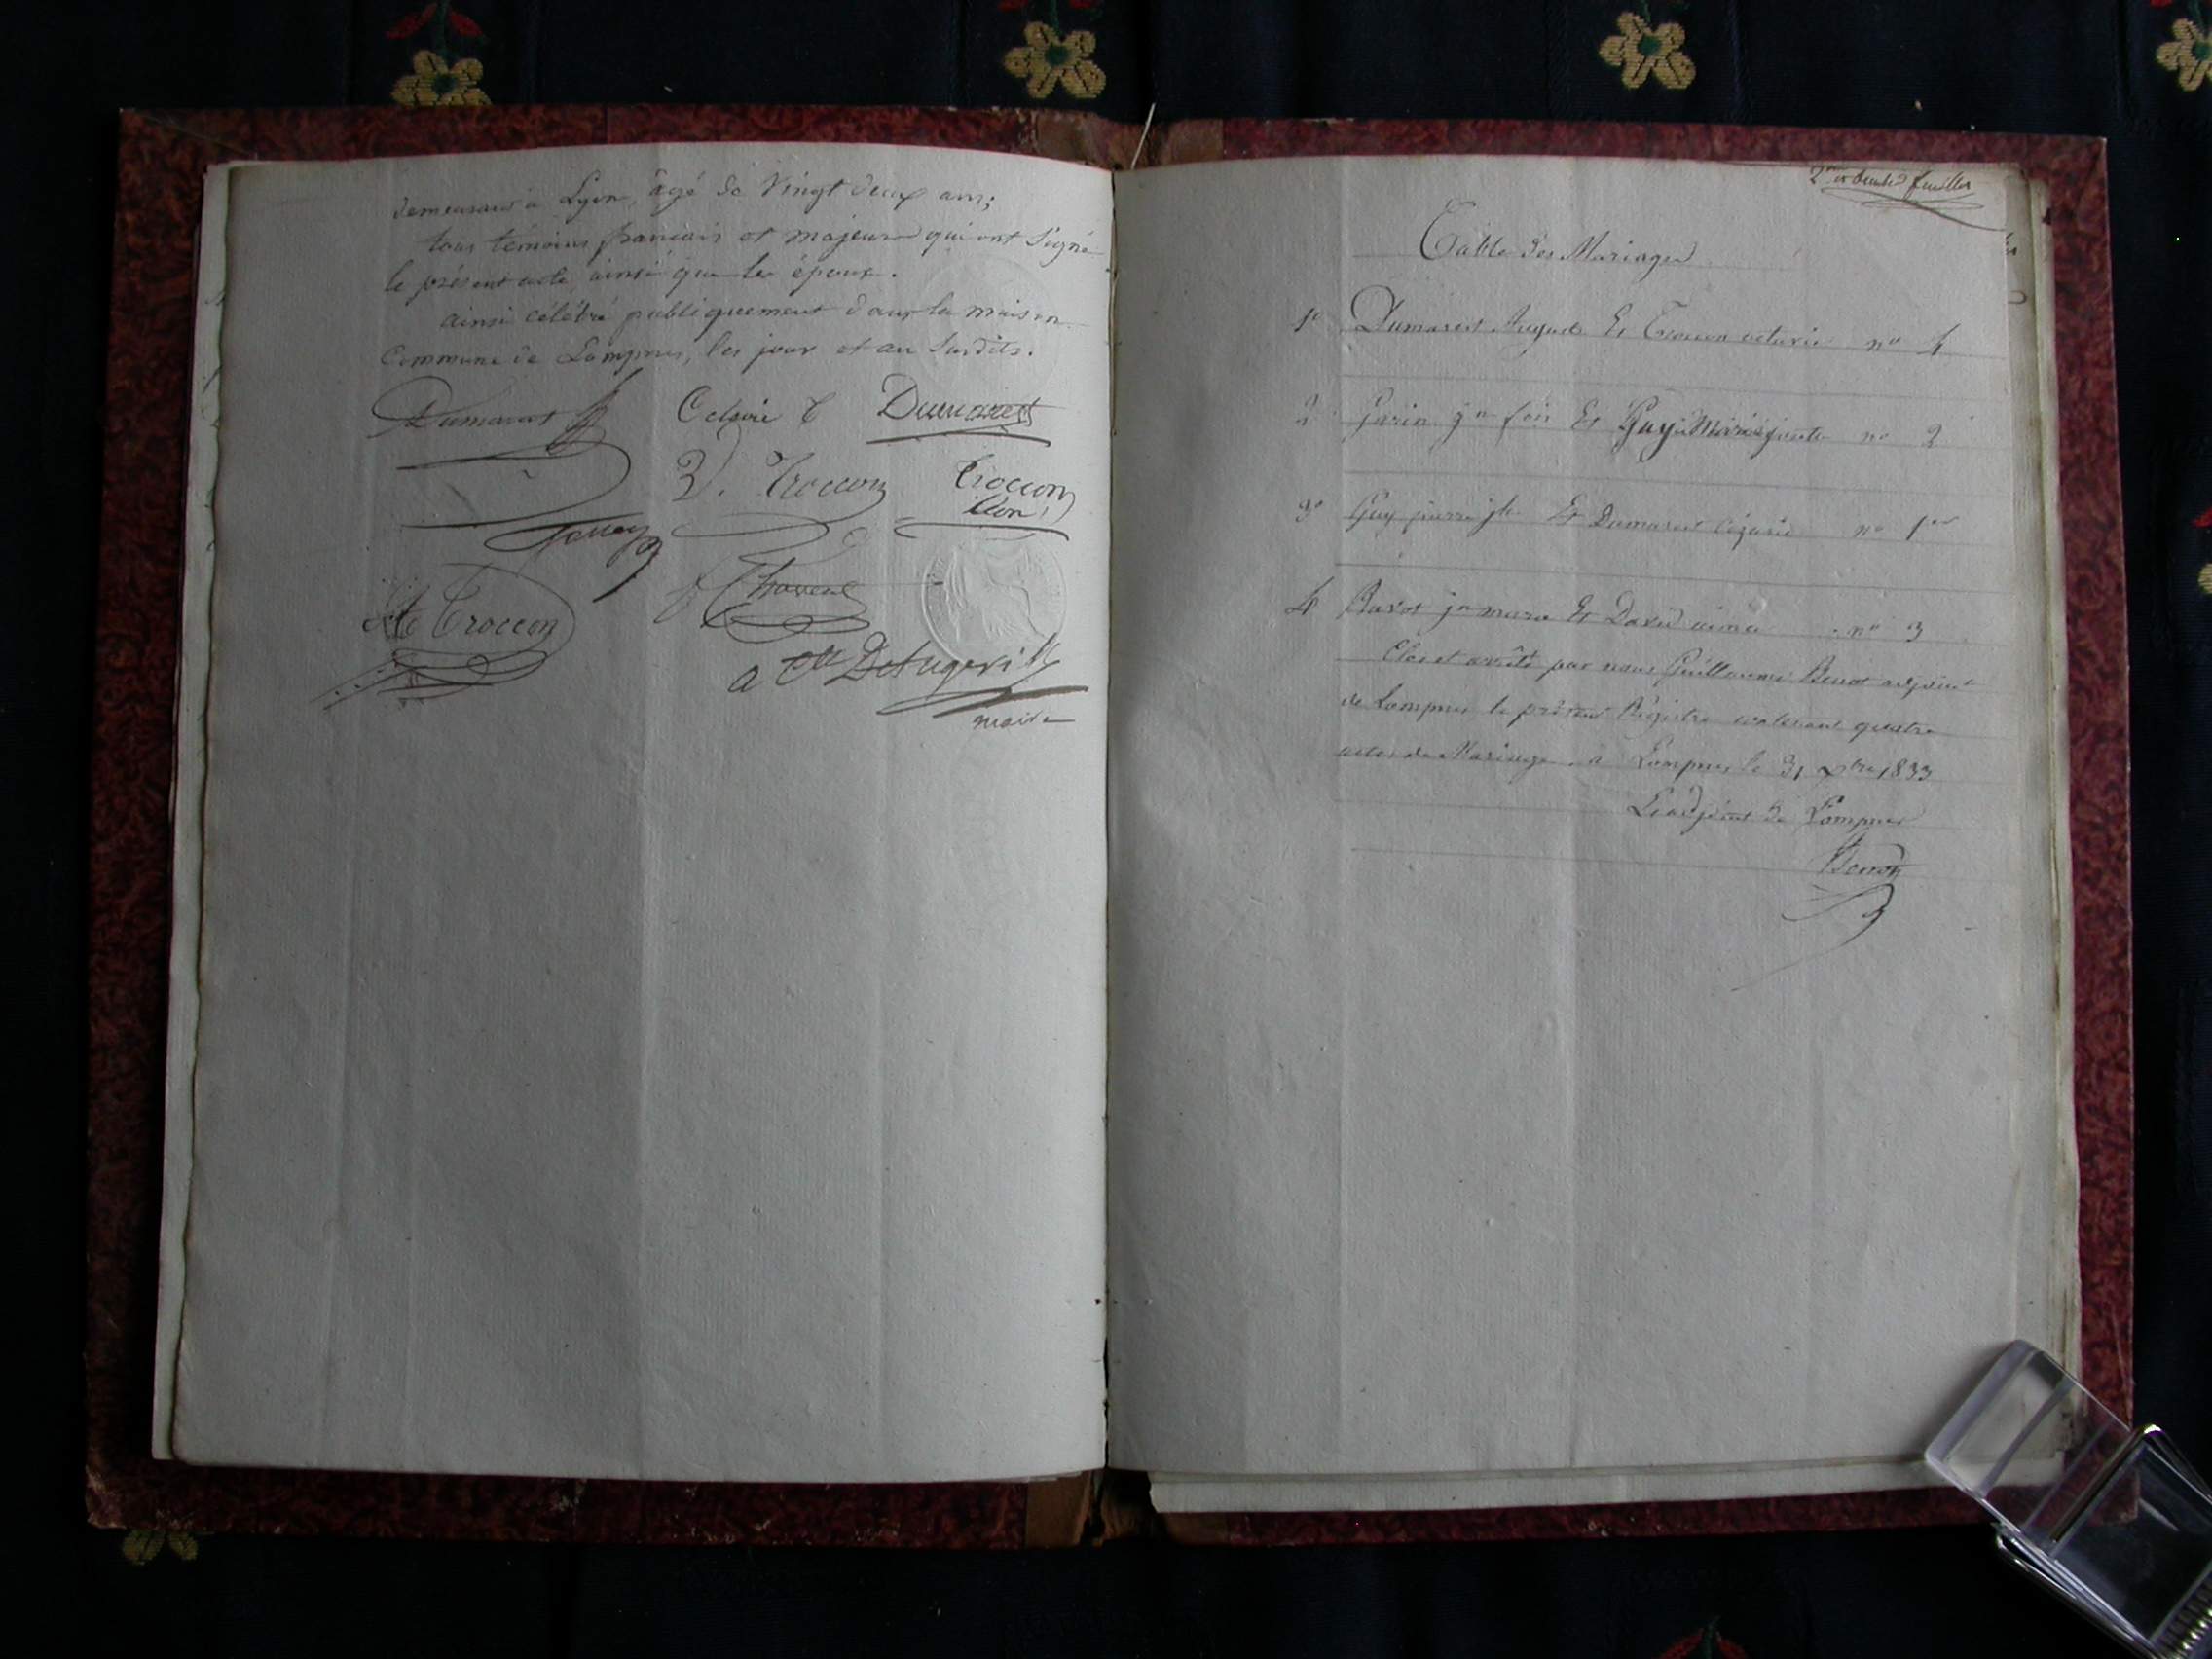 demeurant à Lyon, âgé de Vingt deux ans;
tous témoins francais et majeurs qui ont Signé
le présent acte, ainsi que les époux.
ainsi célébré publiquement dans la maison
Commune de Lompnes, les jour et an Susdits.
Dumarest Octavie T Dumarest
V. Troccon Troccon
Léon
Troccon
maire
2me et dernier feuillet
Table des Mariages
1º Dumarest Auguste Et Troccon octavie nº 4
2º Garin jn fois Et Guy Marie nº 2
3º Guy pierre jh Et Dumarest Cézarie nº 1er
4 jn marie Et David aimée nº 3
Clos et arrêté par nous Guillaume adjoint
de Lompnes le présent Régistre contenant quatre
actes de Mariage. a Lompnes le 31 xbre 1833
L'adjoint de Lompnes